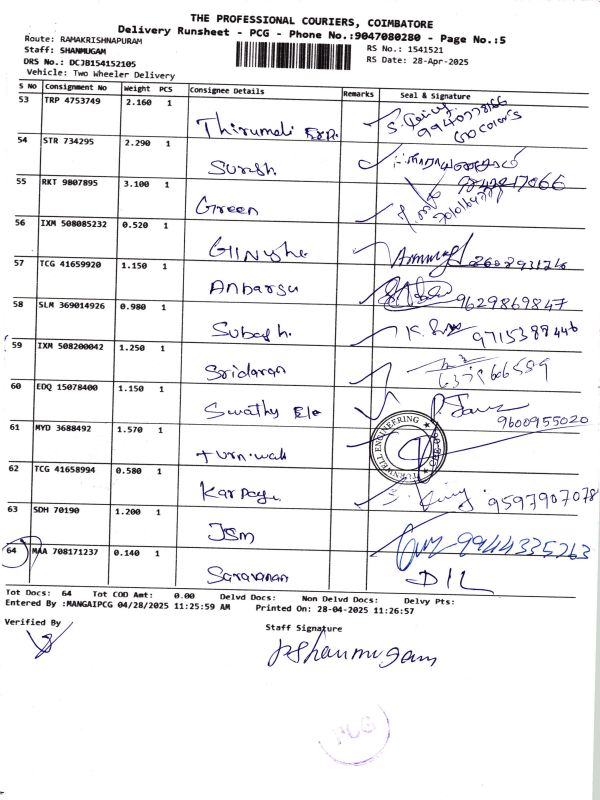 THE PROFESSIONAL COURIERS, COIMBATORE
Delivery Runsheet - PCG - Phone No.:9047080280 - Page No.:5
Route: RAMAKRISHNAPURAM
RS No.: 1541521
Staff: SHANMUGAM
RS Date: 28-Apr-2025
DRS No.: DCJB154152105
Vehicle: Two Wheeler Delivery
S No Consignment No Weight PCS Consignee Details Remarks Seal & Signature
53 TRP 4753749 2.160 1
Thirumali
54 STR 734295 2.290 1
Suresh.
55 RKT 9807895 3.100 1
Green
56 IXM 508085232 0.520 1
57 TCG 41659920 1.150 1
Anbarsu
58 SLM 369014926 0.980 1 9629869847
Subash. 9715389446
59 IXM 508200042 1.250 1
Sridaran
60 EDQ 15078400 1.150 1
Swathy Ele
9600955020
61 MYD 3688492 1.570 1
turnwell TURNWELL ENGINEERING
62 TCG 41658994 0.580 1
Karpaga 9597907078
63 SDH 70190 1.200 1
JSM 9944335263
64 MAA 708171237 0.140 1
Saravanan D/L
Tot Docs: 64 Tot COD Amt: 0.00 Delvd Docs: Non Delvd Docs: Delvy Pts:
Entered By :MANGAIPCG 04/28/2025 11:25:59 AM Printed On: 28-04-2025 11:26:57
Verified By
Staff Signature
Shanmugam
PCG